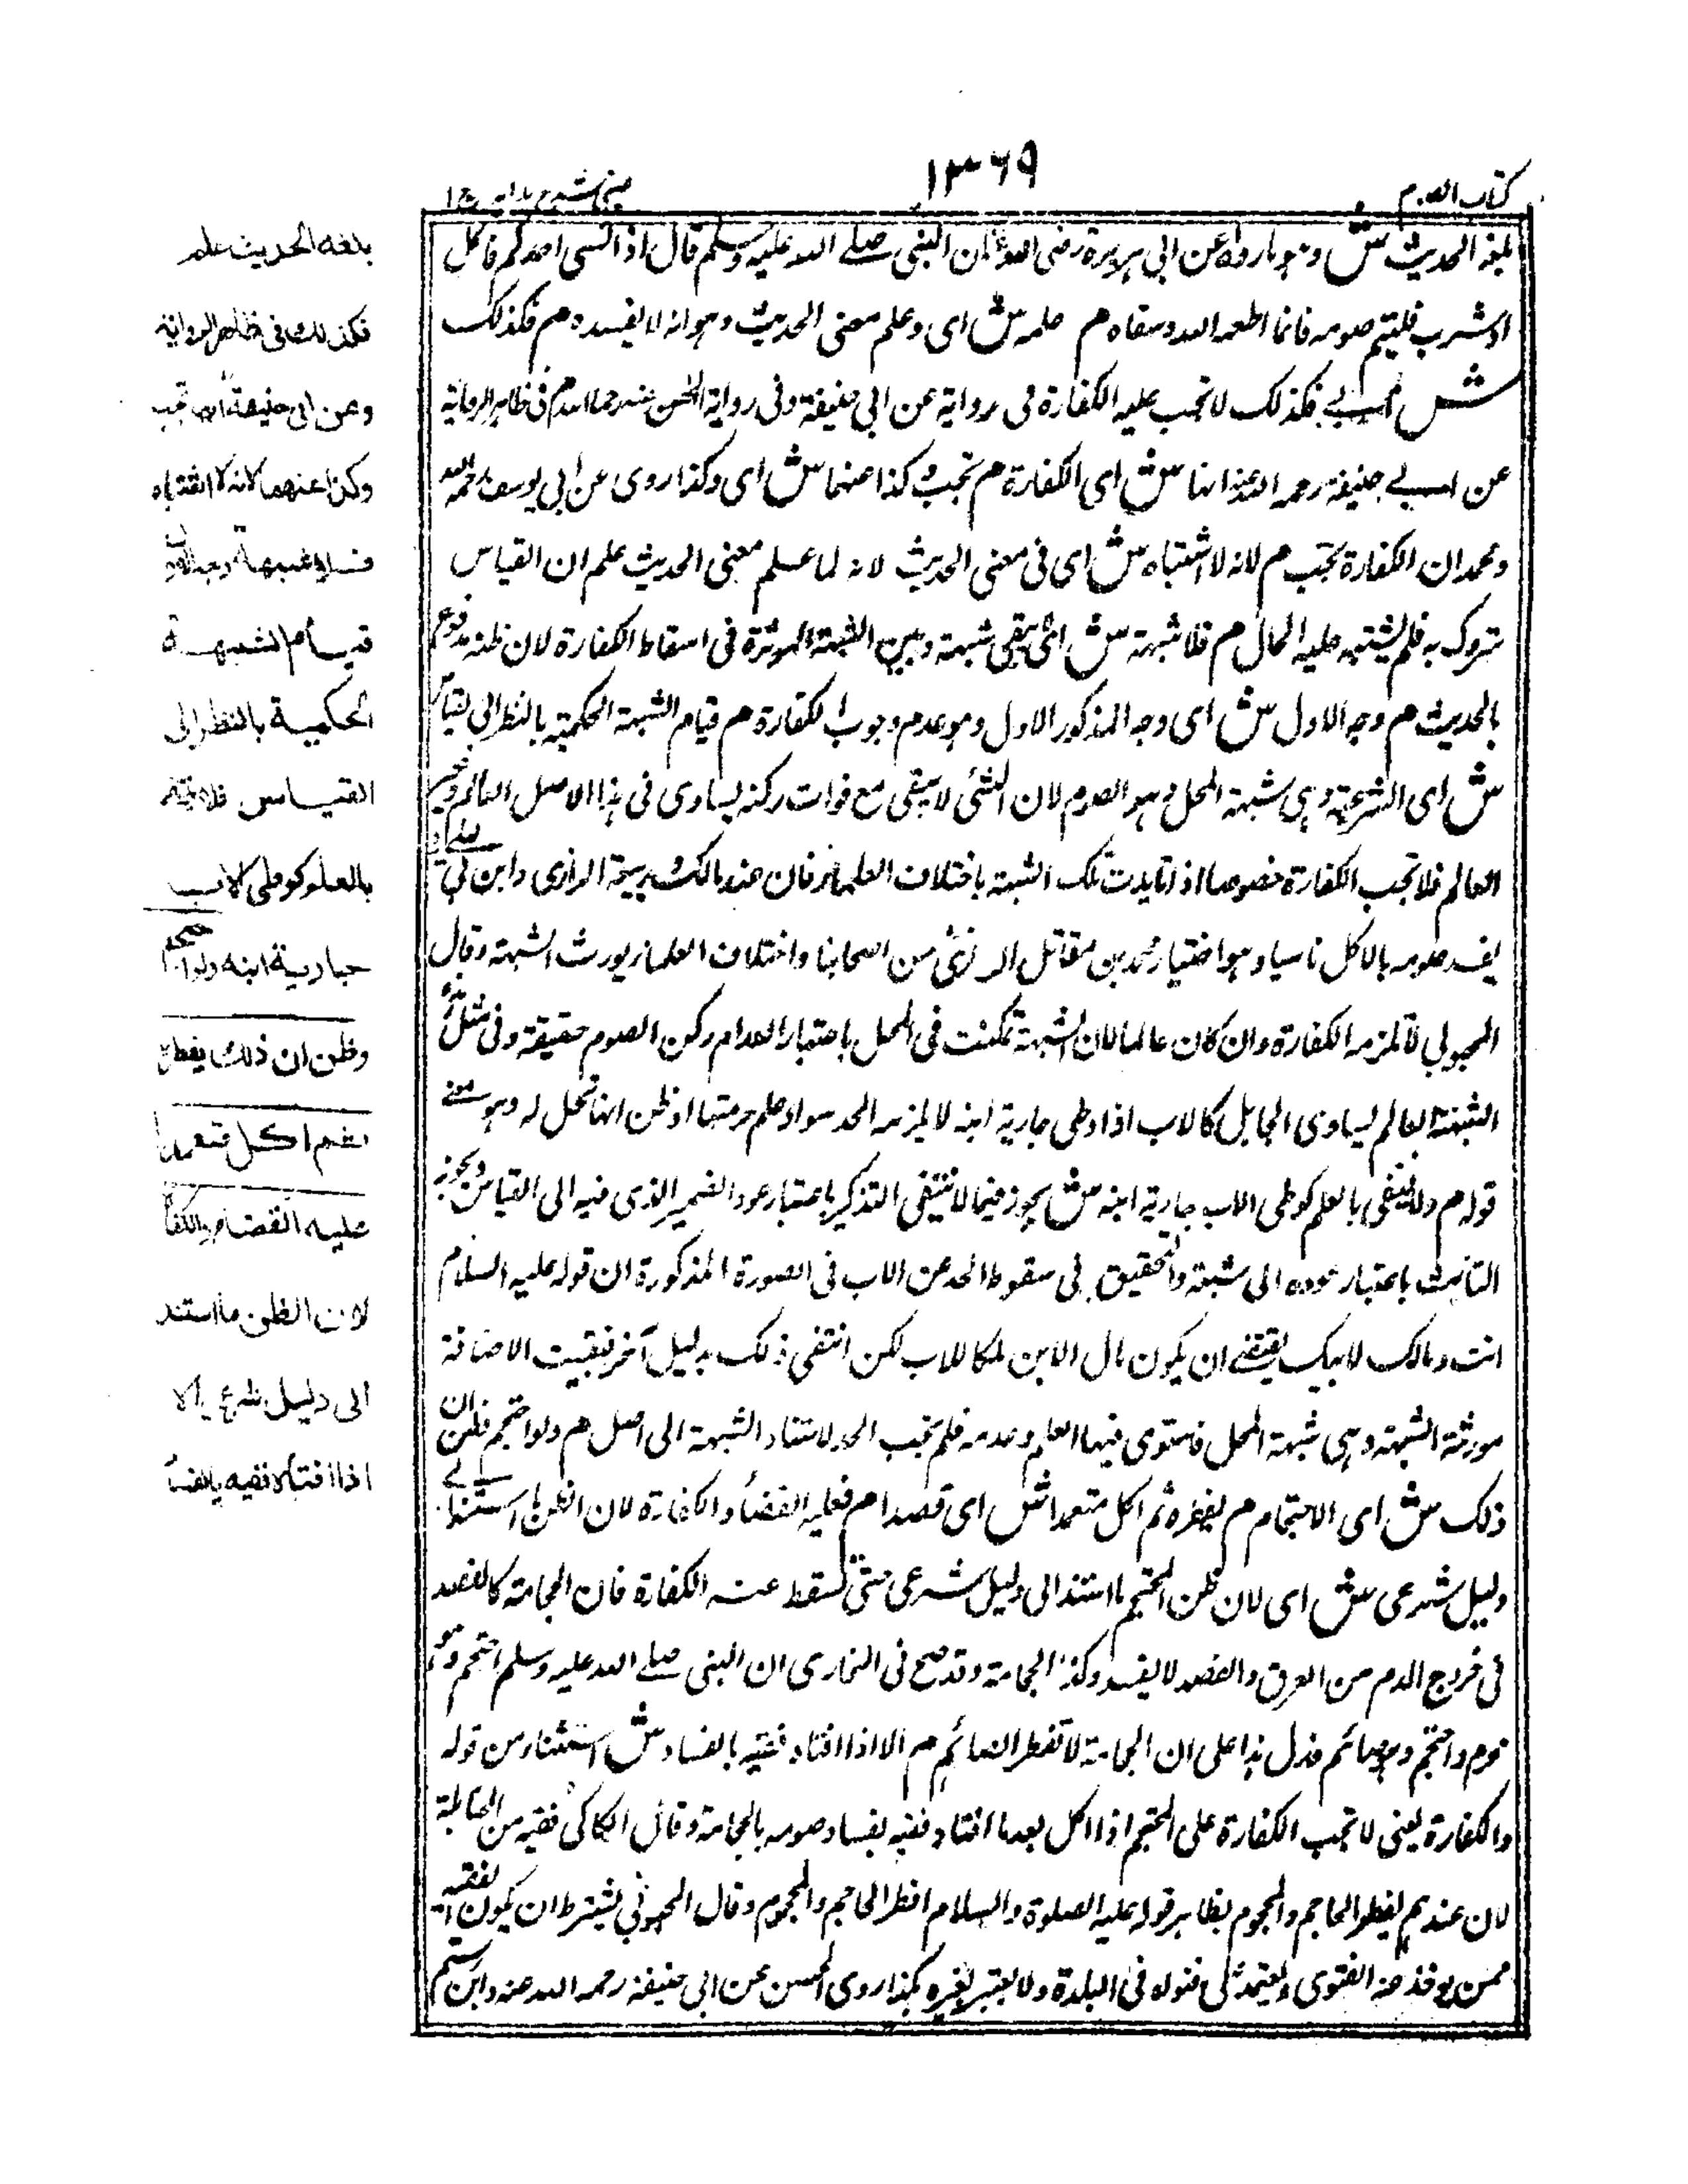 كتاب الصوم
١٣٦٩
عينى شرح هدايه ج ١
بلغه الحديث ش وهو ما رواه عن ابى هريرة رضى الله عنه ان النبى صلے الله عليه وسلم قال اذا نسى احدكم فاكل
او شرب فليتم صومه فانما اطعمه الله وسقاه م علمه ش اى وعلم معنى الحديث وهو انه لا يفسده م فكذلك
ش اى فكذلك لا تجب عليه الكفارة فى رواية عن ابى حنيفة وفى رواية الحسن عنه م فى ظاهر الرواية
عن ابے حنيفة رحمه الله عنه انها ش اى الكفارة م تجب وكذا عنهما ش اى وكذا روى عن ابى يوسف رحمه الله
ومحمد ان الكفارة تجب م لانه لا اشتباه ش اى فى معنى الحديث لانه لما علم معنى الحديث علم ان القياس
متروك به فلم يشتبه عليه الحال م فلا شبهة ش اى يبقى شبهة وبين الشبهة المؤثرة فى اسقاط الكفارة لان ظنه مدفوع
بالحديث م وجه الاول ش اى وجه المذكور الاول وهو عدم وجوب الكفارة م قيام الشبهة الحكمية بالنظر الى القياس
ش اى الشرعية وهى شبهة المحل وهو الصوم لان الشئ لا يبقى مع فوات ركنه يساوى فى هذا الاصل العالم وغير
العالم فلا تجب الكفارة خصوصا اذا تايدت تلك الشبهة باختلاف العلماء فان عند مالك وربيعة الرازى وابن ابى ليلے
يفسد صومه بالاكل ناسيا وهو اختيار محمد بن مقاتل الرازى من اصحابنا واختلاف العلماء يورث الشبهة وقال
المحبوبى لا تلزمه الكفارة وان كان عالما لان الشبهة تمكنت فى المحل باعتبار انعدام ركن الصوم حقيقة وفى مثل هذه
الشبهة العالم يساوى الجاهل كالاب اذا وطى جارية ابنه لا يلزمه الحد سواء علم حرمتها او ظن انها تحل له وهو معنے
قوله م ولا ينتفى بالعلم كوطى الاب جارية ابنه ش يجوز فيما لا ينتفى التذكير باعتبار عود الضمير الذى فيه الى القياس ويجوز
التانيث باعتبار عوده الى شبهة والتحقيق فى سقوط الحد عن الاب فى الصورة المذكورة ان قوله عليه السلام
انت ومالك لابيك يقتضے ان يكون مال الابن ملكا للاب لكن انتفى ذلك بدليل آخر فبقيت الاضافة
مورثة الشبهة وهى شبهة المحل فاستوى فيها العلم وعدمه فلم يجب الحد لاستناد الشبهة الى اصل م ولو احتجم فظن ان
ذلك ش اى الاحتجام م يفطره ثم اكل متعمدا ش اى قصدا م فعليه القضاء والكفارة لان الظن ما استند الے
دليل شرعى ش اى لان ظن المحتجم ما استند الى دليل شرعى حتى تسقط عنه الكفارة فان الحجامة كالفصد
فى خروج الدم من العرق والفصد لا يفسد وكذا الحجامة وقد صح فى البخارى ان النبى صلے الله عليه وسلم احتجم وهو
محرم واحتجم وهو صائم فدل هذا على ان الحجامة لا تفطر الصائم م الا اذا افتاه فقيه بالفساد ش استثناء من قوله
والكفارة يعنى لا تجب الكفارة على المحتجم اذا اكل بعد ما افتاه فقيه بفساد صومه بالحجامة وقال الكاكى فقيه من الحنابلة
لان عندهم يفطر الحاجم والمحجوم بظاهر قوله عليه الصلوة والسلام افطر الحاجم والمحجوم وقال المحبوبى يشترط ان يكون الفقيه
ممن يوخذ منه الفتوى ويعتمد على فتواه فى البلدة ولا يعتبر بغيره هكذا روى الحسن عن ابى حنيفة رحمه الله عنه وابن رستم
بلغه الحديث علمه
فكذلك فى ظاهر الرواية
وعن ابى حنيفة انها تجب
وكذا عنهما لانه لا اشتباه
فلا شبهة وجه الاول
قيام الشبهة
الحكمية بالنظر الى
القياس فلا ينتفى
بالعلم كوطى الاب
جارية ابنه ولو احتجم
وظن ان ذلك يفطره
ثم اكل متعمدا
عليه القضاء والكفارة
لان الظن ما استند
الى دليل شرعى الا
اذا افتاه فقيه بالفساد